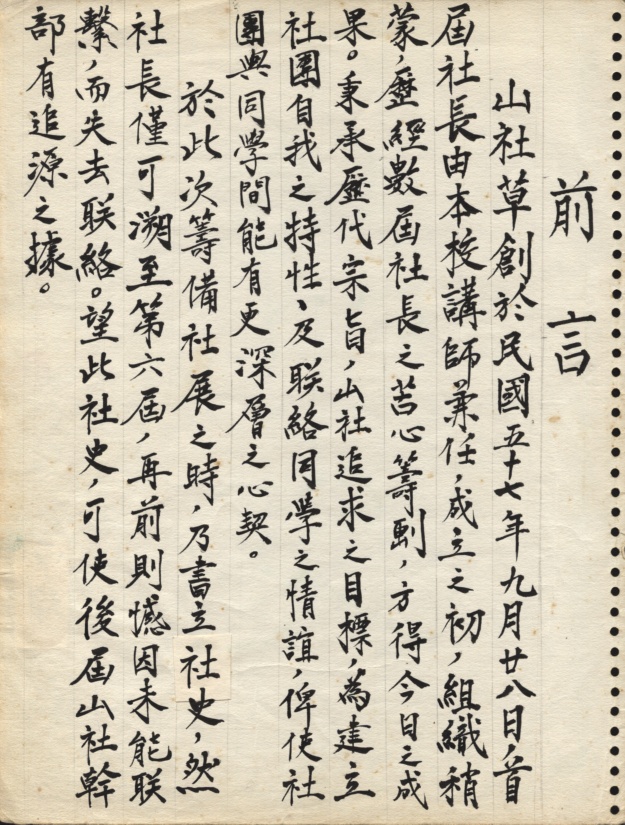 前言
山社草創於民國五十七年九月廿八日，首
屆社長由本校講師兼任，成立之初，組織稍
蒙，歷經數屆社長之苦心籌劃，方得今日之成
果。秉承歷代宗旨，山社追求之目標，為建立
社團自我之特性、及聯絡同學之情誼，俾使社
團與同學間能有更深層之心契。
於此次籌備社展之時，乃書立社史，然
社長僅可溯至第六屆，再前則憾因未能聯
繫，而失去聯絡。望此社史，可使後屆山社幹
部有追源之據。